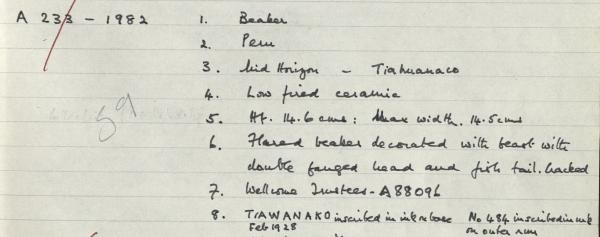 A 233 - 1982 1. Beaker
2. Peru
3. Mid Horizon - Tiahuanaco
4. Low fired ceramic
59
5. Ht. 14.6 cms: Max width. 14.5cms
6. Flared beaker decorated with beast with
double fanged head and fish tail. Cracked
7. Wellcome Trustees - A88096
8. TIAWANAKO inscribed in ink on base No 484 inscribed in ink
Feb 1928 on outer rim